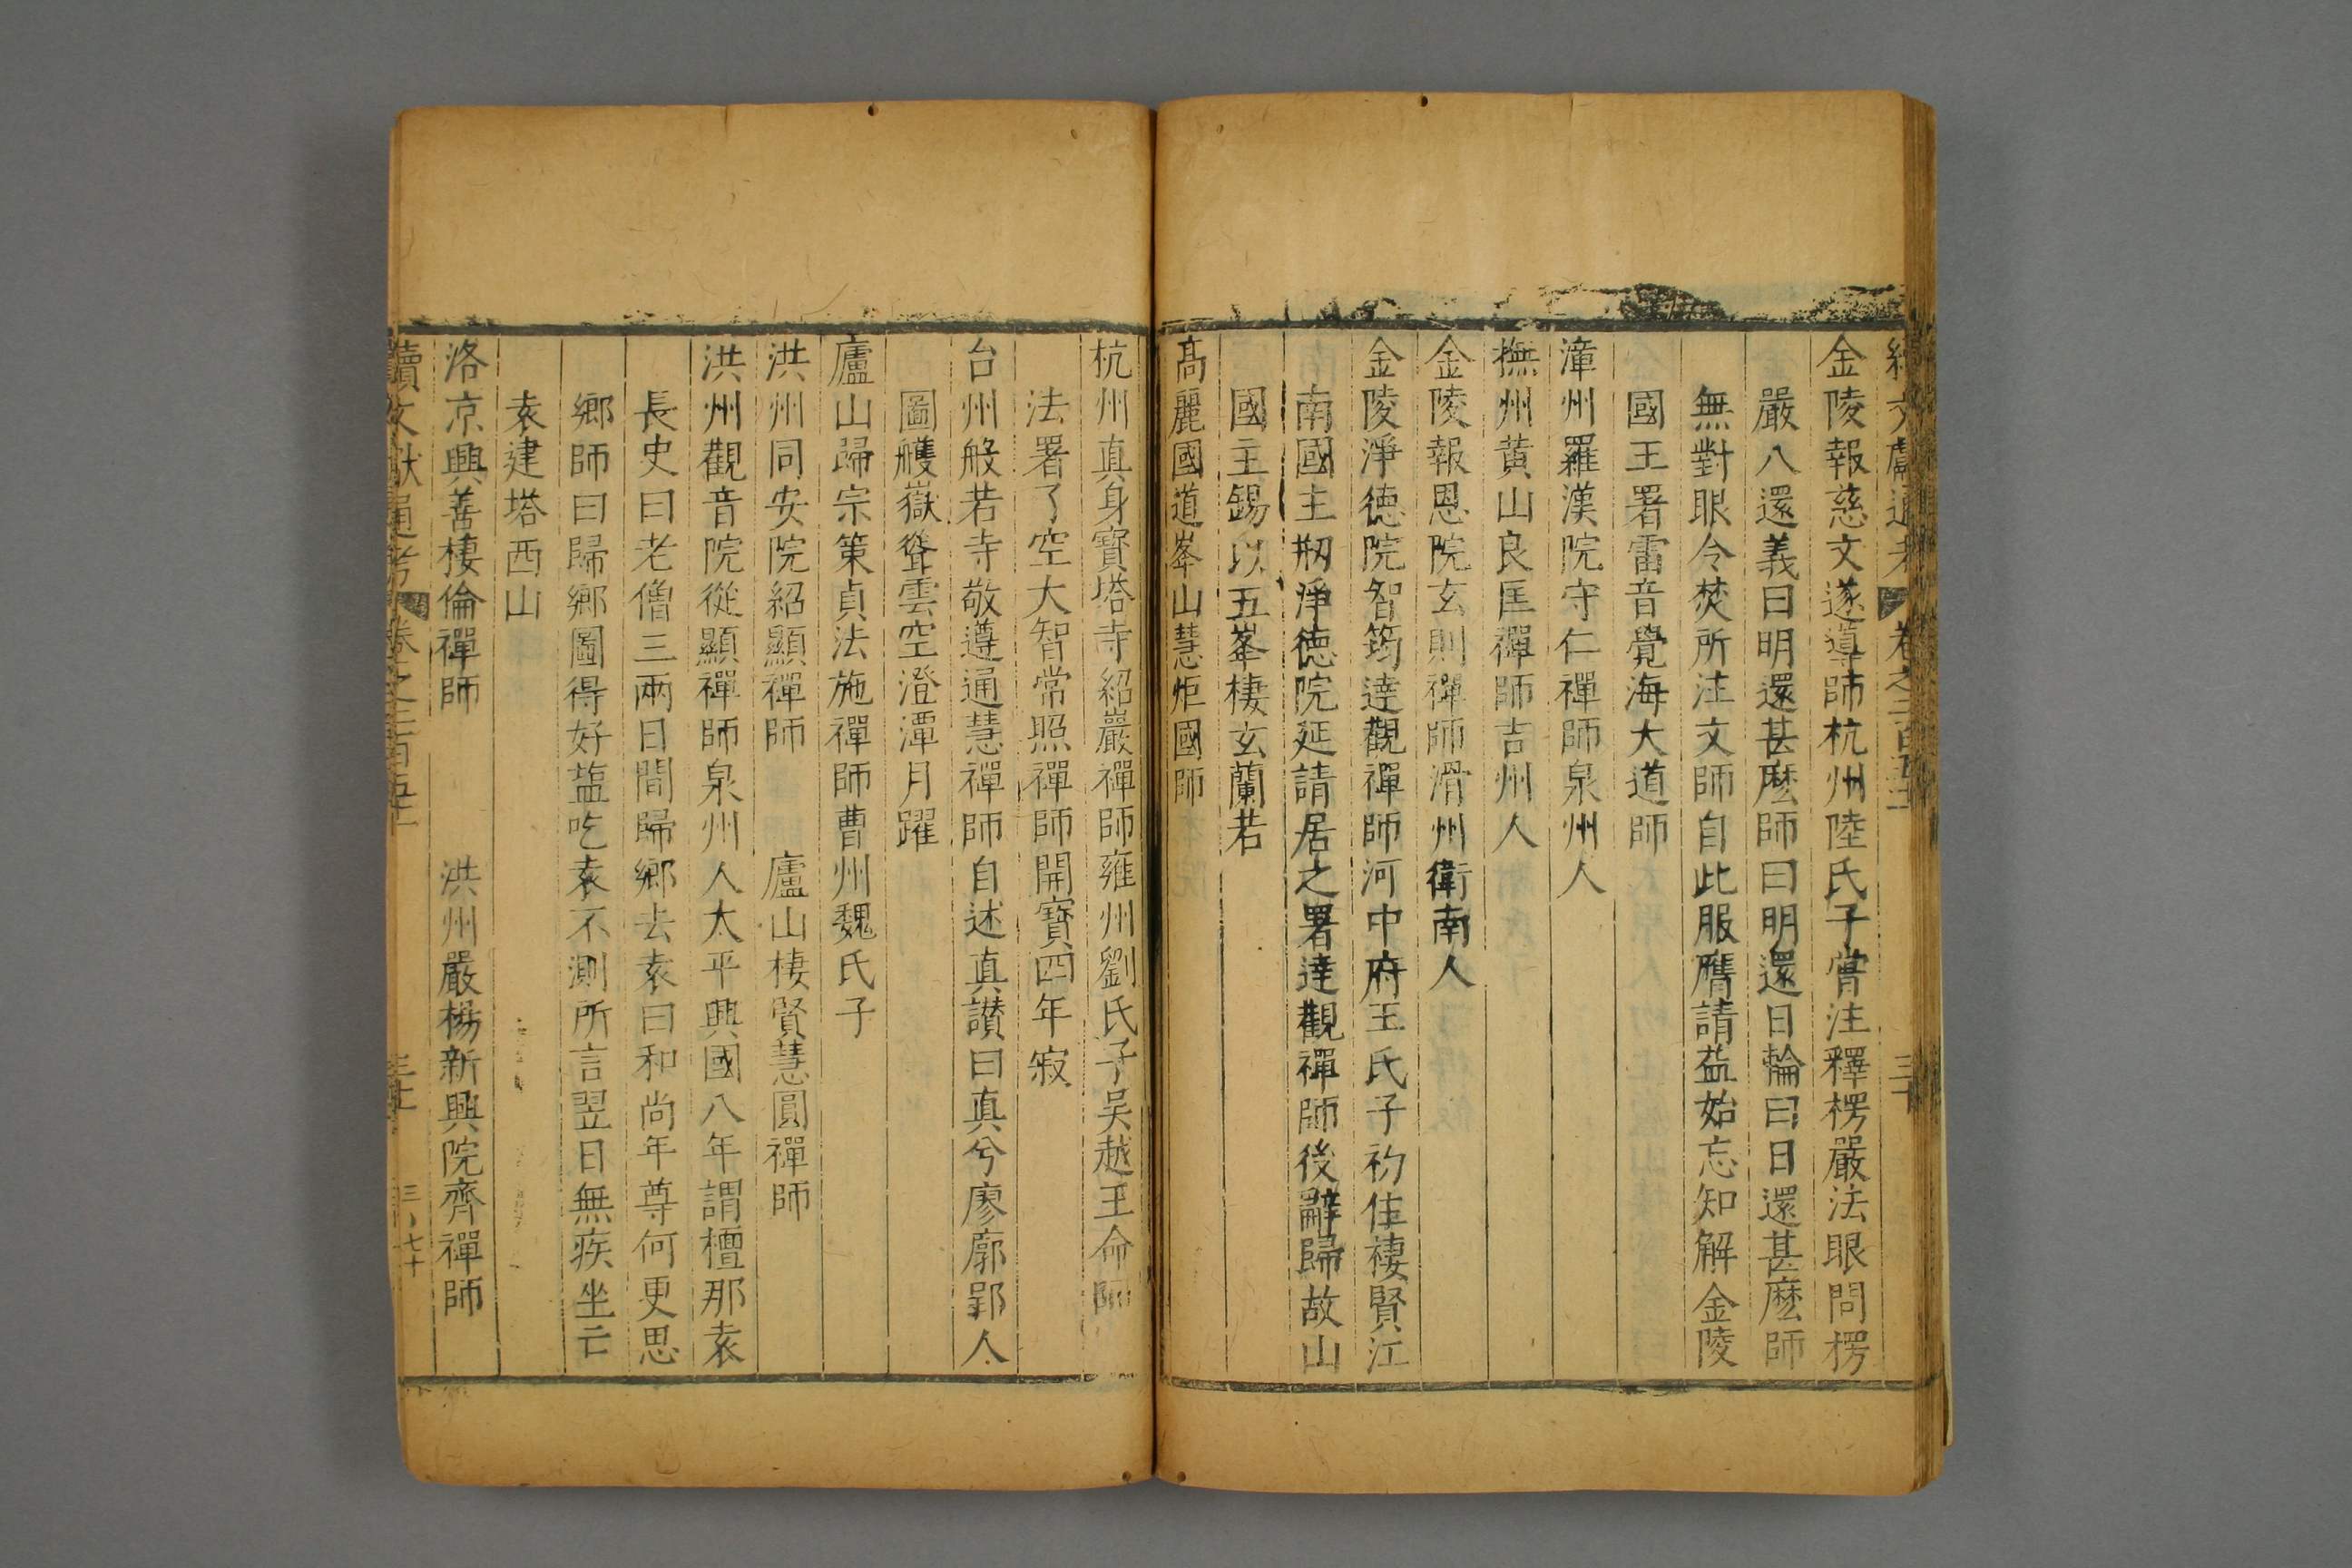 金陵報慈文遂導師杭州陸氏子嘗注釋楞嚴法眼問楞
嚴八還義曰明還甚麽師曰明還日輪曰日還甚麽師
無對眼令焚所注文師自此服膺請益始忘知解金陵
國王署雷音覺海大道師
漳州羅漢院守仁禪師泉州人
撫州黄山良匡禪師吉州人
金陵報恩院玄則禪師滑州衛南人
金陵淨德院智筠逹觀禪師河中府王氏子初住棲賢江
南國主剏淨德院延請居之署達觀禪師後辭歸故山
國主錫以五峯棲玄蘭若
高麗國道峯山慧炬國師
杭州真身寶塔寺紹巖禪師雍州劉氏子吴越王命師
法署了空大智常照禪師開寶四年寂
台州般若寺敬遵通慧禪師自述真讃曰真兮廖廓郢人
圖艧嶽聳雲空澄潭月躍
廬山歸宗策貞法施禪師曹州魏氏子
洪州同安院紹顯禪師 廬山棲賢慧圓禪師
洪州觀音院從顯禪師泉州人太平興國八年謂檀那袁
長史曰老僧三兩日間歸鄉去袁曰和尚年尊何更思
鄉師曰歸鄉圖得好蓝吃袁不測所言翌日無疾坐亡
袁建塔西山
洛京興善棲倫禪師 洪州嚴楊新興院齊禪師
續文獻通考 卷之二百五十